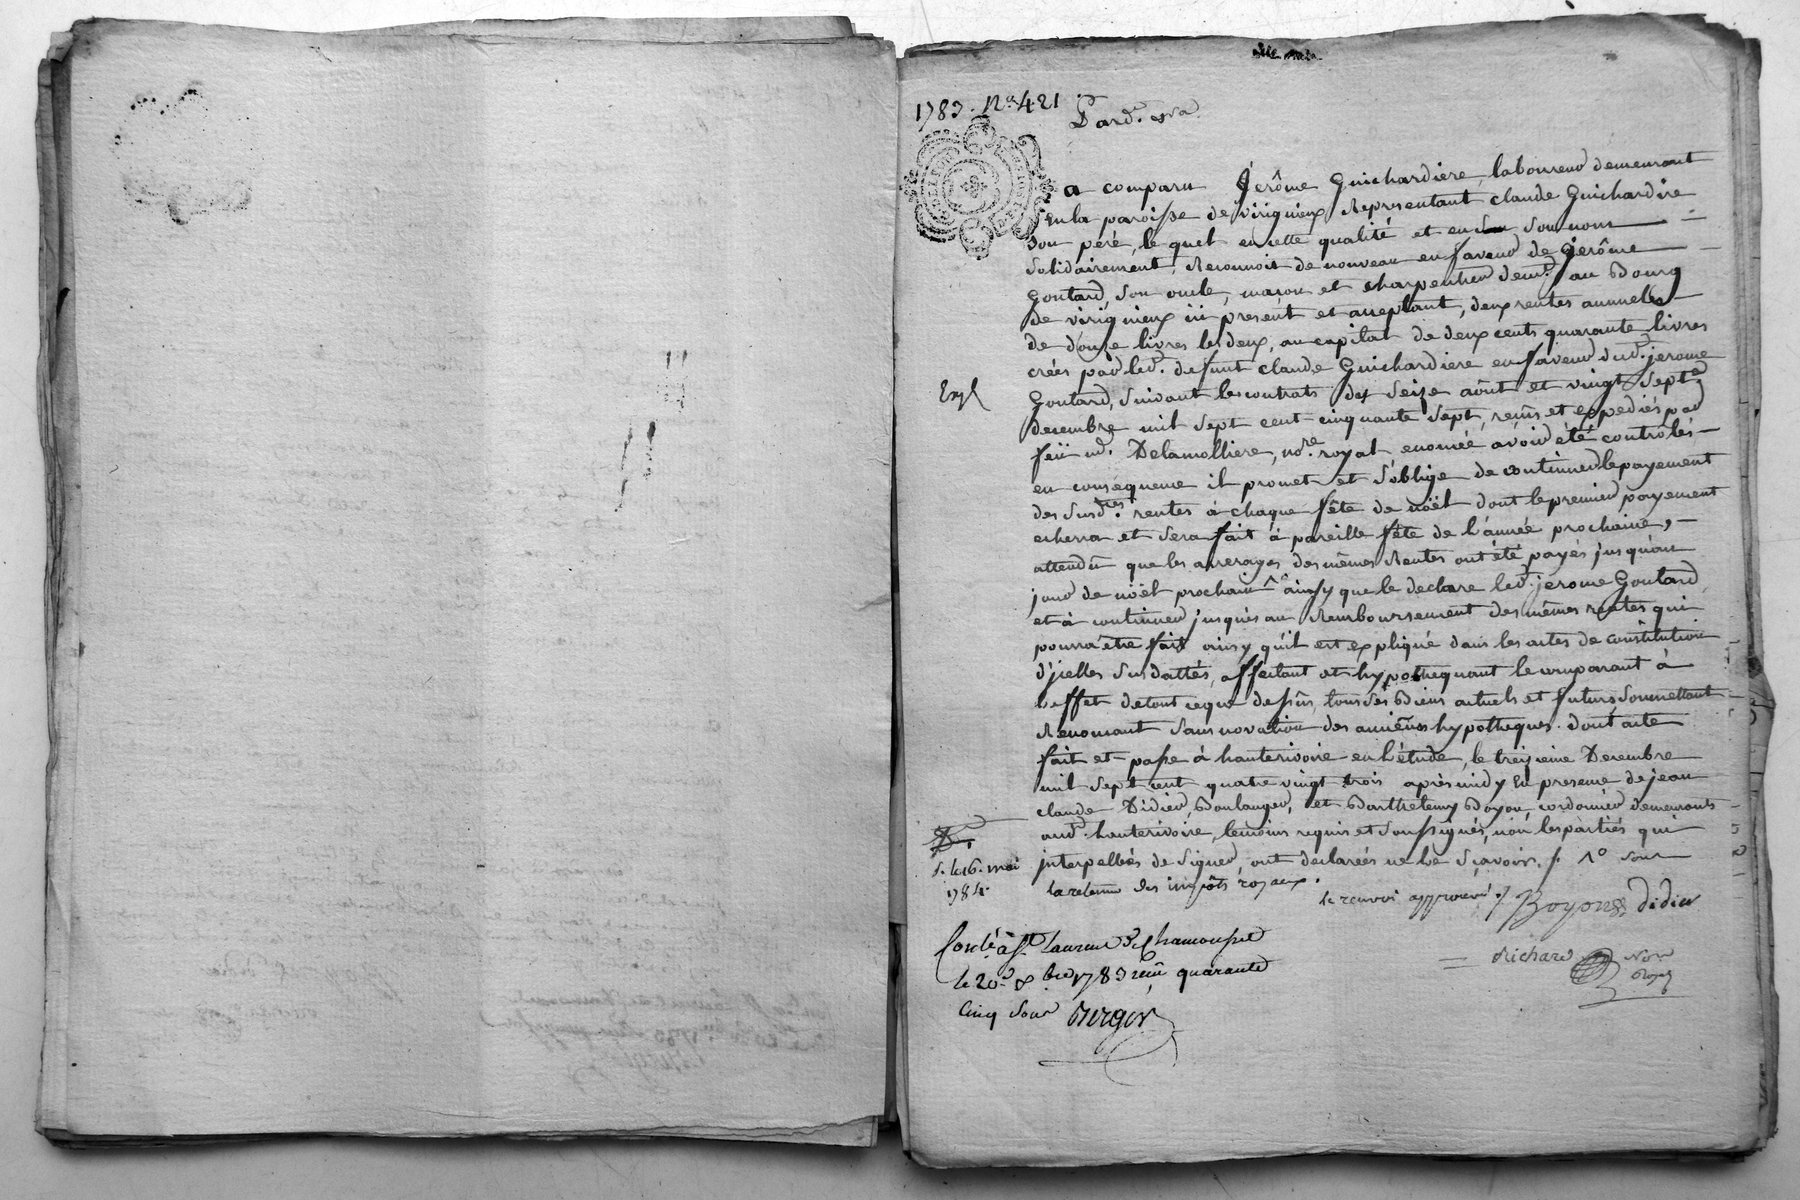 1783. No. 421
Pard.t
a comparu Jerôme Guichardiere, laboureur demeurant
en la paroisse de virigneux, Representant claude Guichardire
Son peré, le quel en cette qualité et en Son nom
Solidairement, Reconnoit de nouveau en faveur de Jerôme
Goutard, Son oncle, mason et charpentier dem.t au Bourg
de virigneux ici present et acceptant, deux rentes annuelles
de douze livres les deux, au capital de deux cents quarante livres
crées par led. defunt claude Guichardiere en faveur dud. jerome
Goutard, Suivant les contrats des Seize août et vingt Sept
Decembre mil Sept cent cinquante Sept, reçus et expediés par
feü me. Delamolliere, no.re royal, enoncée avoir été contrôlés
en consequence il promet et S'oblige de continuer le payement
des Susd.tes rentes à chaque fête de noël dont le premier payement
echerra et Sera fait à pareille fête de l'année prochaine,
attendu que les arrerages des mêmes Rentes ont été payés jusqu'au
jour de noël prochain ainsy que le declare led. jerome Goutard,
et à continuer jusques au Remboursement des mêmes rentes qui
pourra être fait ainsy qu'il est expliqué dans les actes de constitution
d'jcelles Sus dattés, affectant et hypothequant le comparant à
l'effet de tout ce que dessus, tous Ses Biens actuels et futurs Soumettant
Renonçant Sans novation des anciens hypotheques. dont acte
fait et passé à hauterivoire en l'étude, le treizieme Decembre
mil Sept cent quatre vingt trois après midy En presence de jean
claude Didier Boulanger, et Barthelemy Boyon cordonnier demeurants
aud. hauterivoire, temoins requis et Soussignés, non les parties qui
jnterpellées de Signer ont declarées ne le Sçavoir. /. 1º Sous
la retenue des impôts royaux.
le renvoi approuvé /. Boyon Didier
Expé
S. le 16. mai
1784.
Con.lé à St Laurent de Chamousset
le 20. Xbre 1783 reçu quarante
Cinq Sous Berger
Richard Nore
Royal